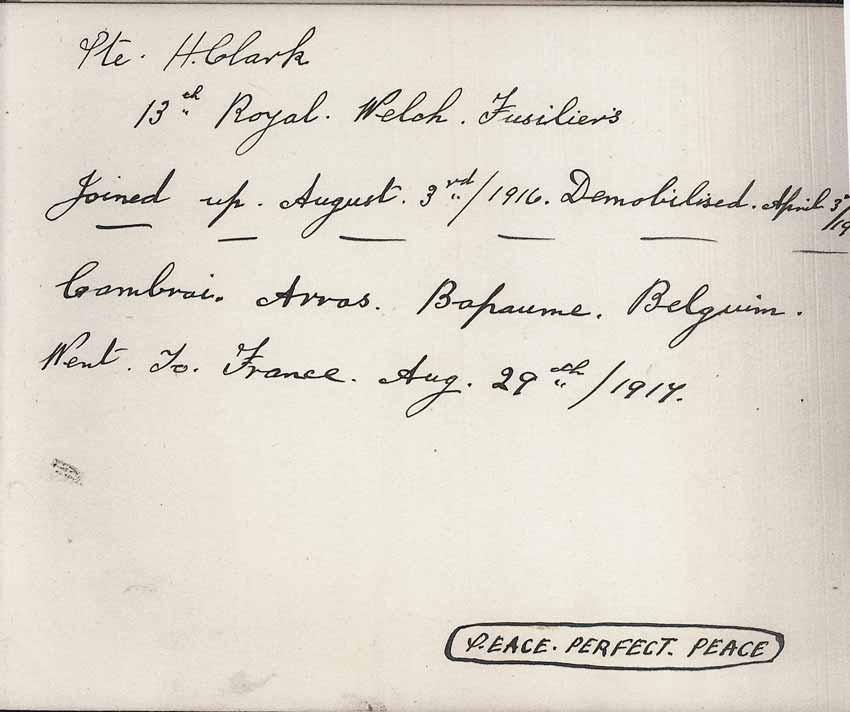 Pte. H. Clark
13th Royal. Welch. Fusiliers
Joined up. August. 3rd/1916. Demobilised. April 3rd/19
Cambrai. Arras. Bapaume. Belguim.
Went. To. France. Aug. 29th/1917.
P.EACE. PERFECT. PEACE